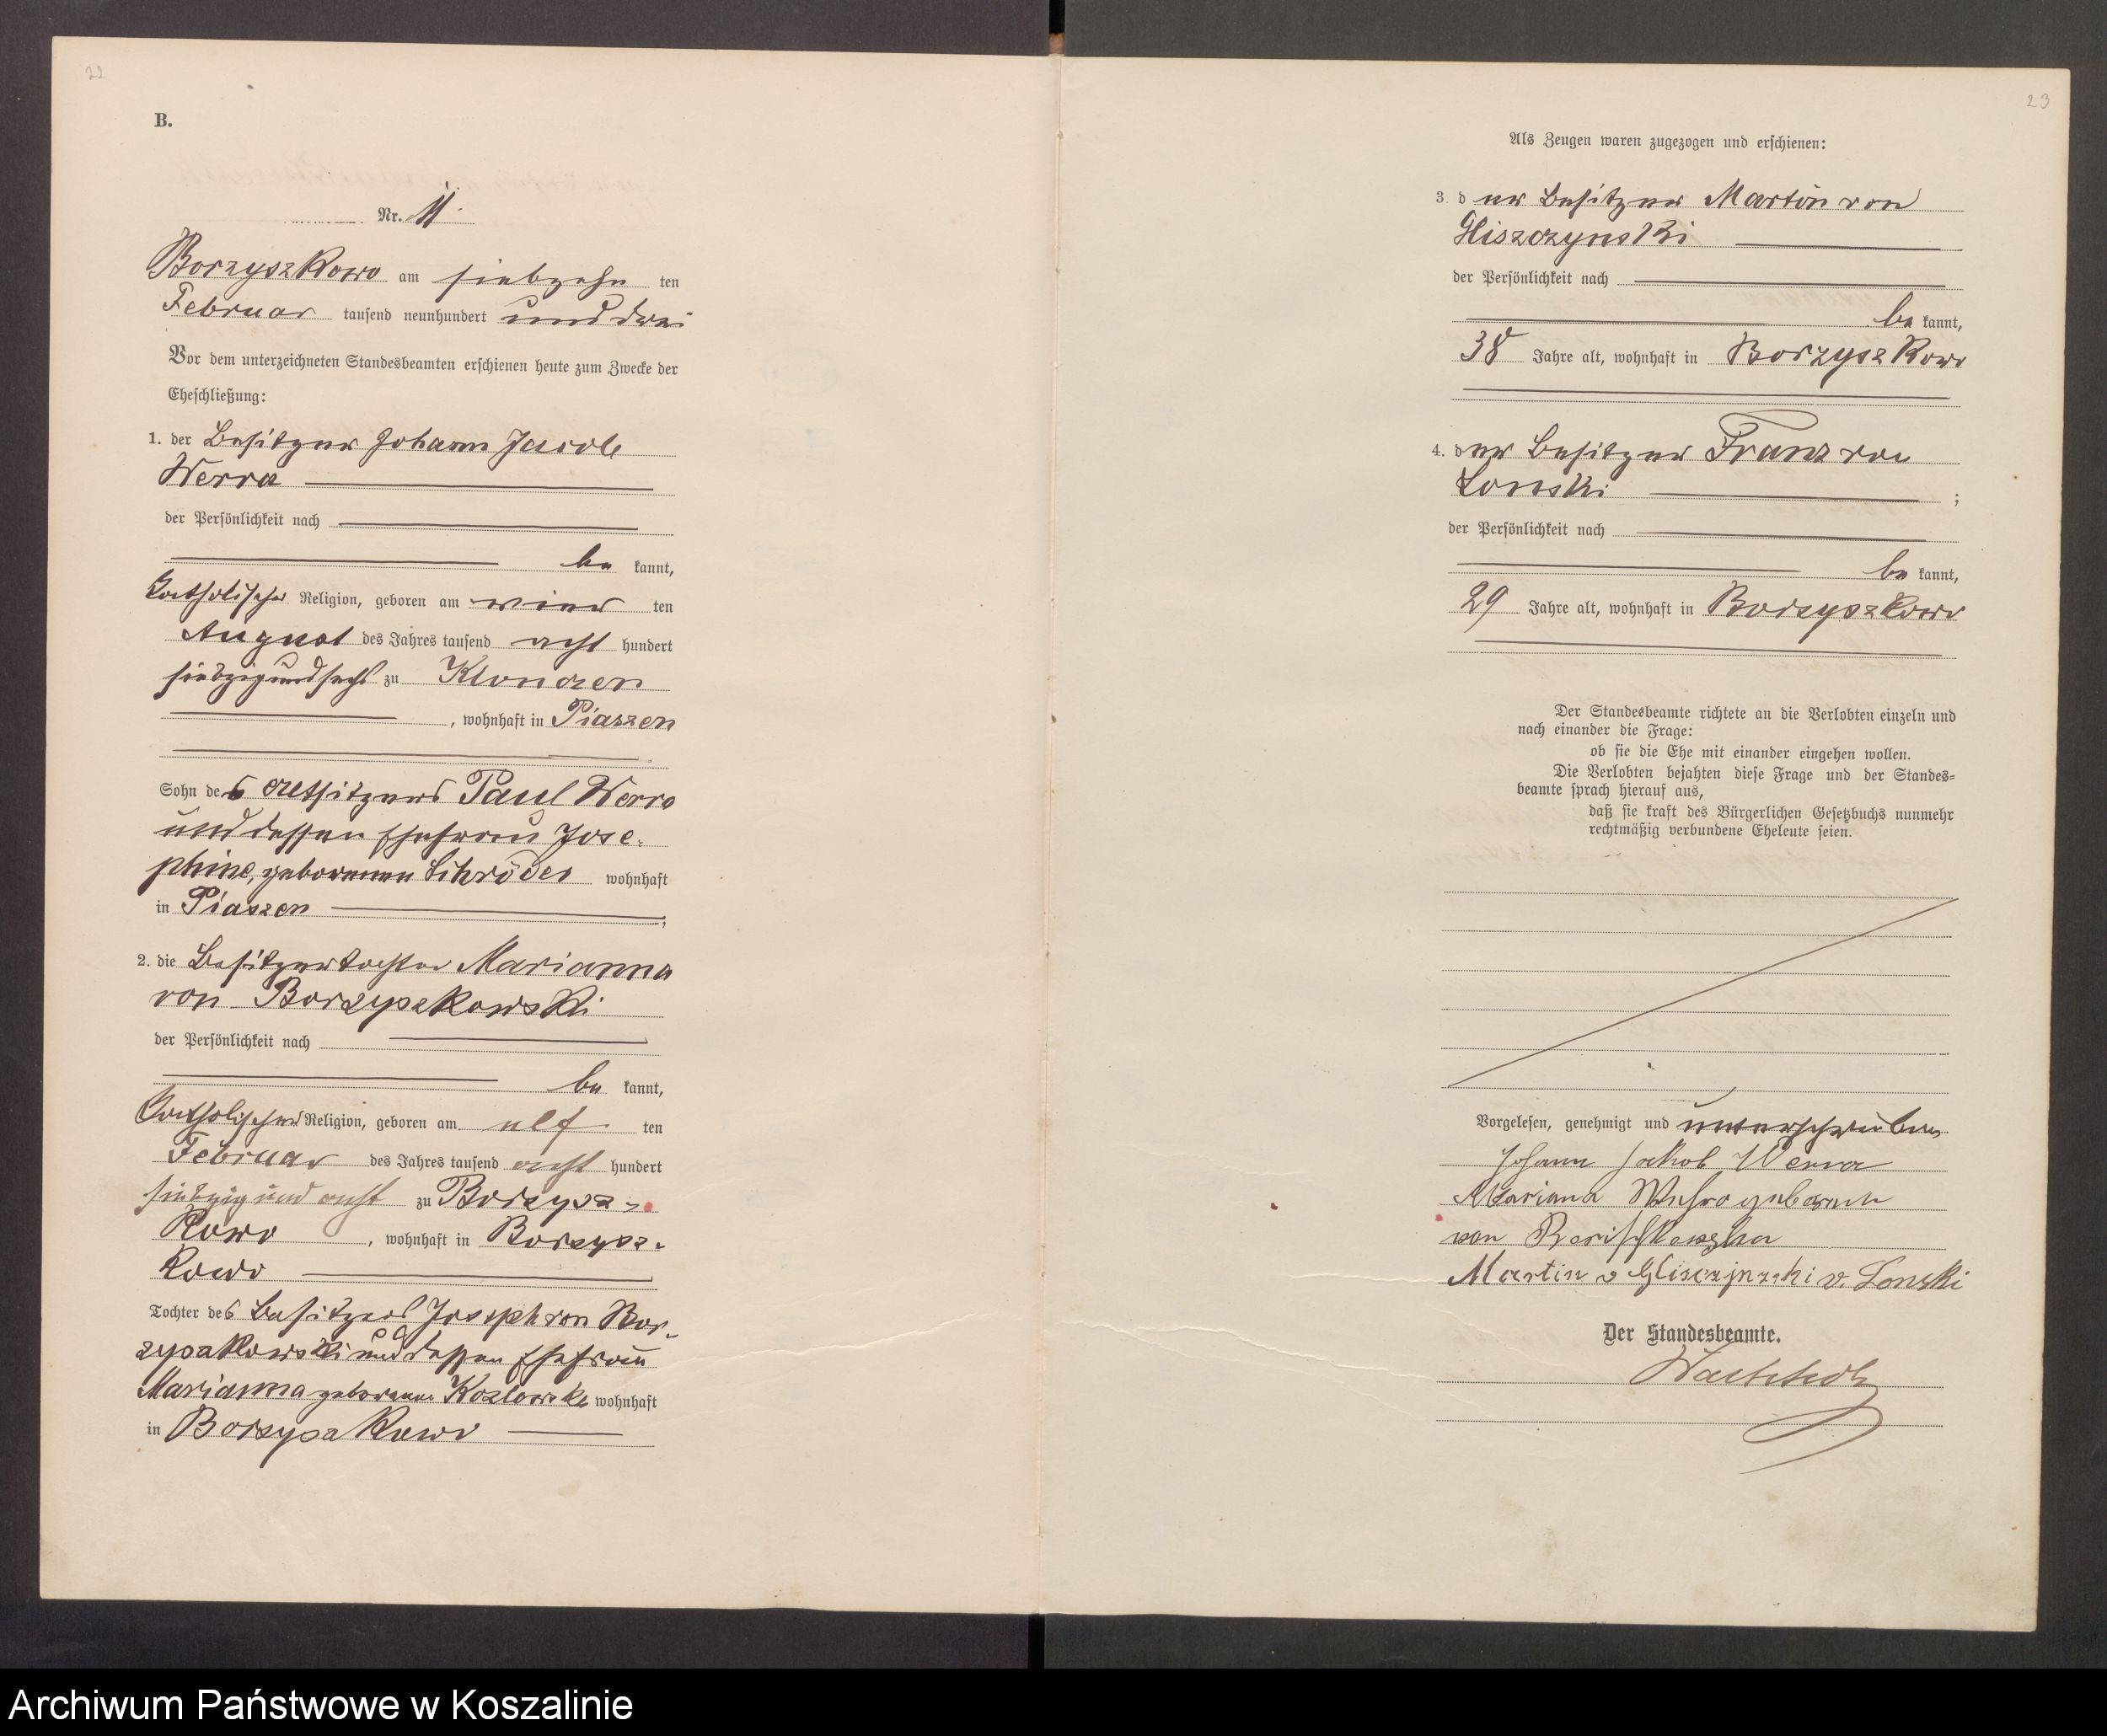 22
B.
Nr. 11.
Borzyszkowo am siebzehn ten
Februar tausend neunhundert und drei
Vor dem unterzeichneten Standesbeamten erschienen heute zum Zwecke der
Eheschließung:
1. der Besitzer Johann Jacob
Werra
der Persönlichkeit nach
be kannt,
katholischer Religion, geboren am vier ten
August des Jahres tausend acht hundert
siebzig und sechs zu Klonczen
, wohnhaft in Piaszen
Sohn des Altsitzers Paul Werra
und dessen Ehefrau Jose-
phine, geborenen Schröder wohnhaft
in Piaszen ;
2. die Besitzertochter Marianna
von Borzyszkowski
der Persönlichkeit nach
be kannt,
katholischer Religion, geboren am elf ten
Februar des Jahres tausend acht hundert
siebzig und acht zu Borzysz-
kowo , wohnhaft in Borzysz-
kowo
Tochter des Besitzers Joseph von Bor-
zyszkowski und dessen Ehefrau
Marianna geborene Kozlowski wohnhaft
in Borzyszkowo
23
Als Zeugen waren zugezogen und erschienen:
3. der Besitzer Martin von
Gliszczynski
der Persönlichkeit nach
be kannt,
38 Jahre alt, wohnhaft in Borzyszkowo
4. der Besitzer Franz von
Lonski ;
der Persönlichkeit nach
be kannt,
29 Jahre alt, wohnhaft in Borzyszkowo
Der Standesbeamte richtete an die Verlobten einzeln und
nach einander die Frage:
ob sie die Ehe mit einander eingehen wollen.
Die Verlobten bejahten diese Frage und der Standes=
beamte sprach hierauf aus,
daß sie kraft des Bürgerlichen Gesetzbuchs nunmehr
rechtmäßig verbundene Eheleute seien.
Vorgelesen, genehmigt und unterschrieben
Johann Jakob Werra
Mariana geborene
von
Martin v Gliszczynski v. Lonski
Der Standesbeamte.
Archiwum Państwowe w Koszalinie